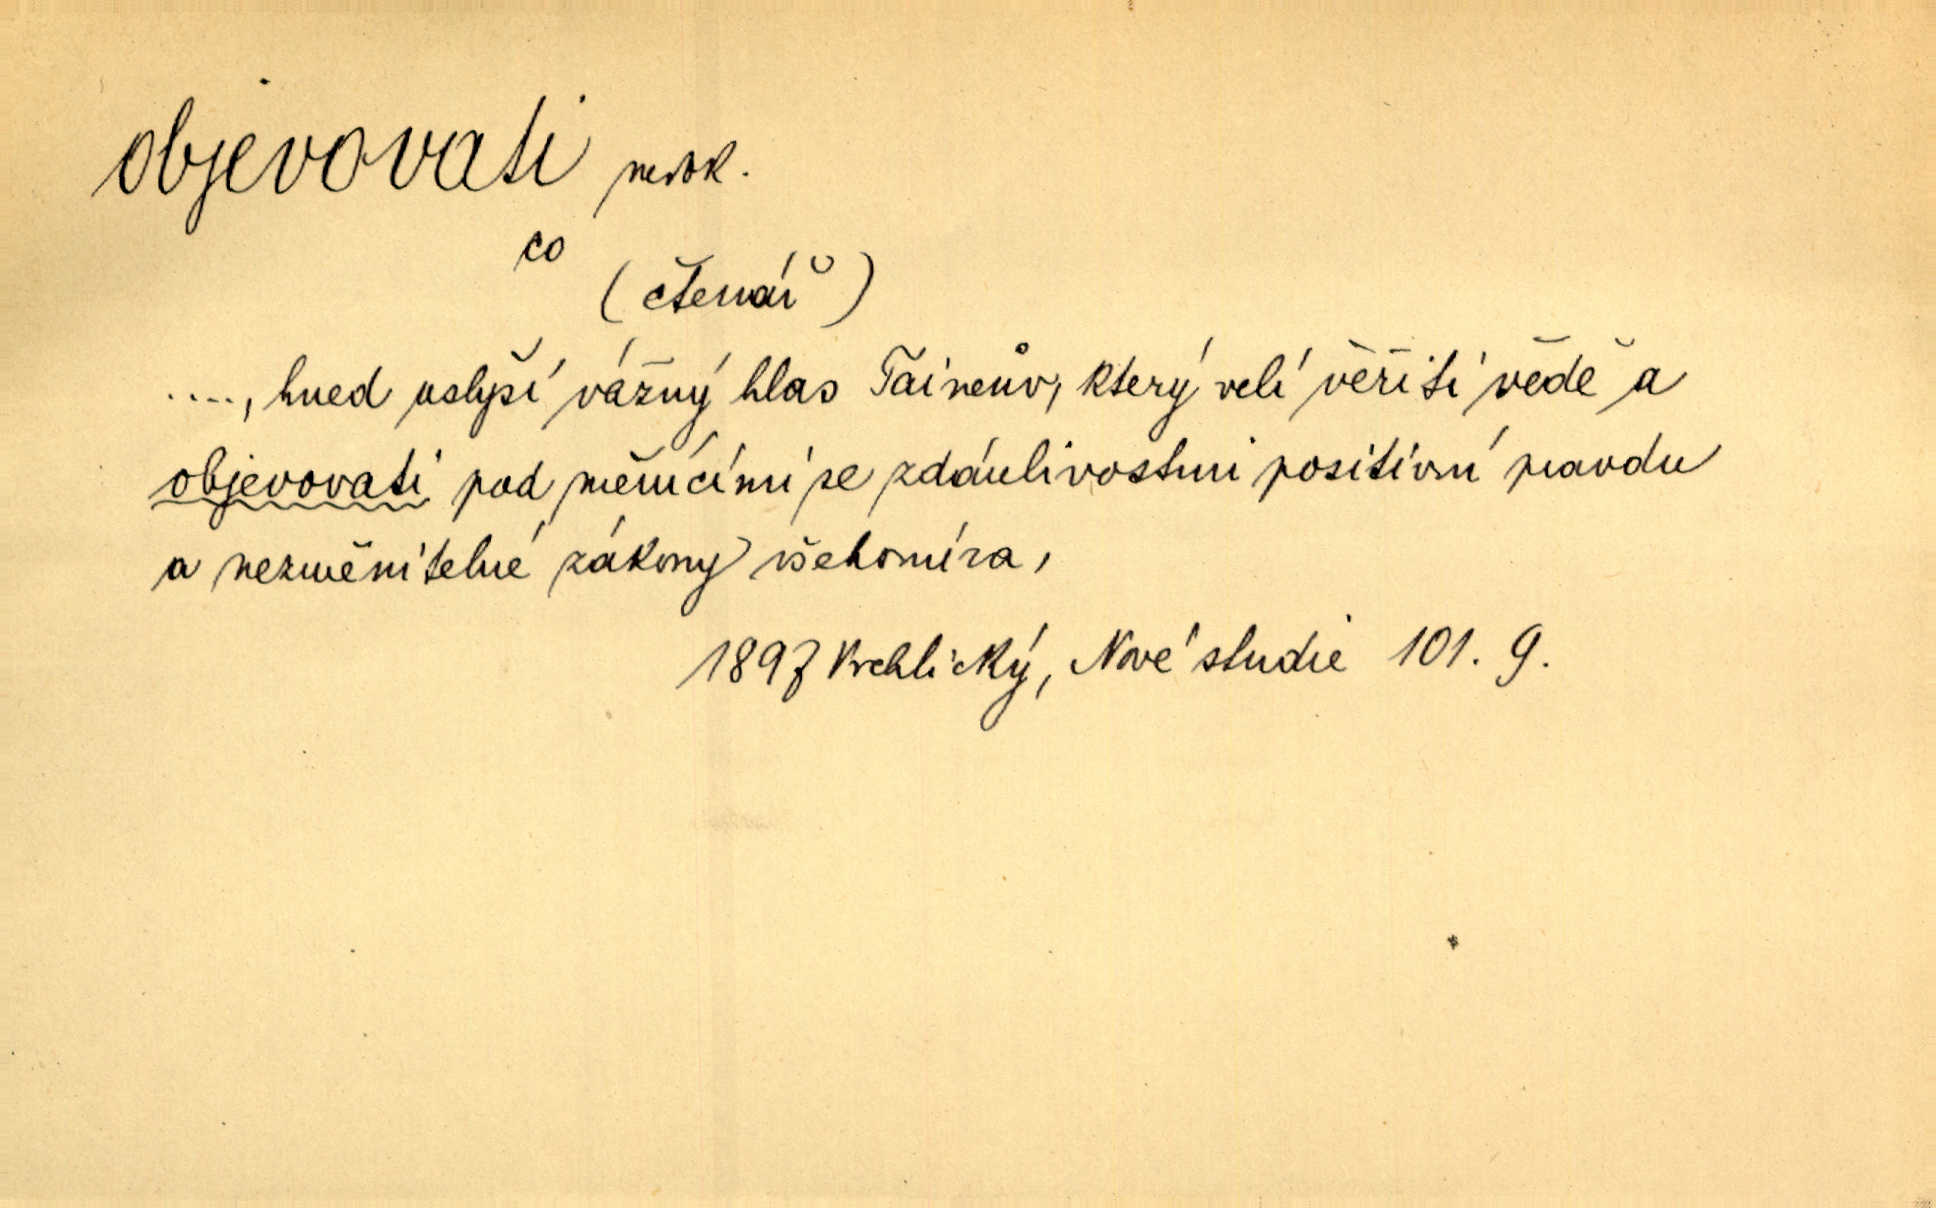 objevovati nedok.
co
(čtenář)
...., hned uslyší vážný hlas Taineův, který velí věřiti vědě a
objevovati pod měnícími se zdánlivostmi positivní pravdu
a nezměnitelné zákony všehomíra,
1897 Vrchlický, Nové studie 101. 9.